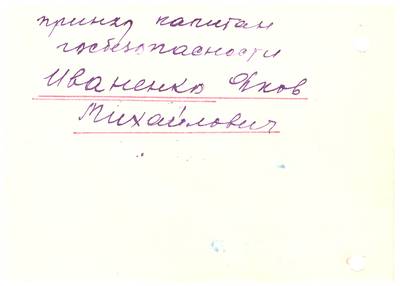 капитан
госбезопасности
Иваненко Яков
Михайлович